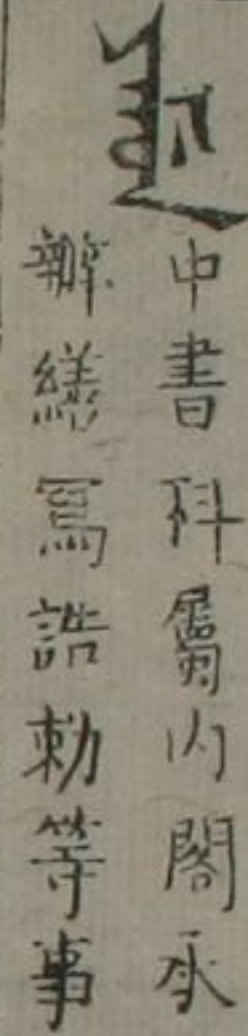 中書科屬內閣承
辦繕寫誥勅等事